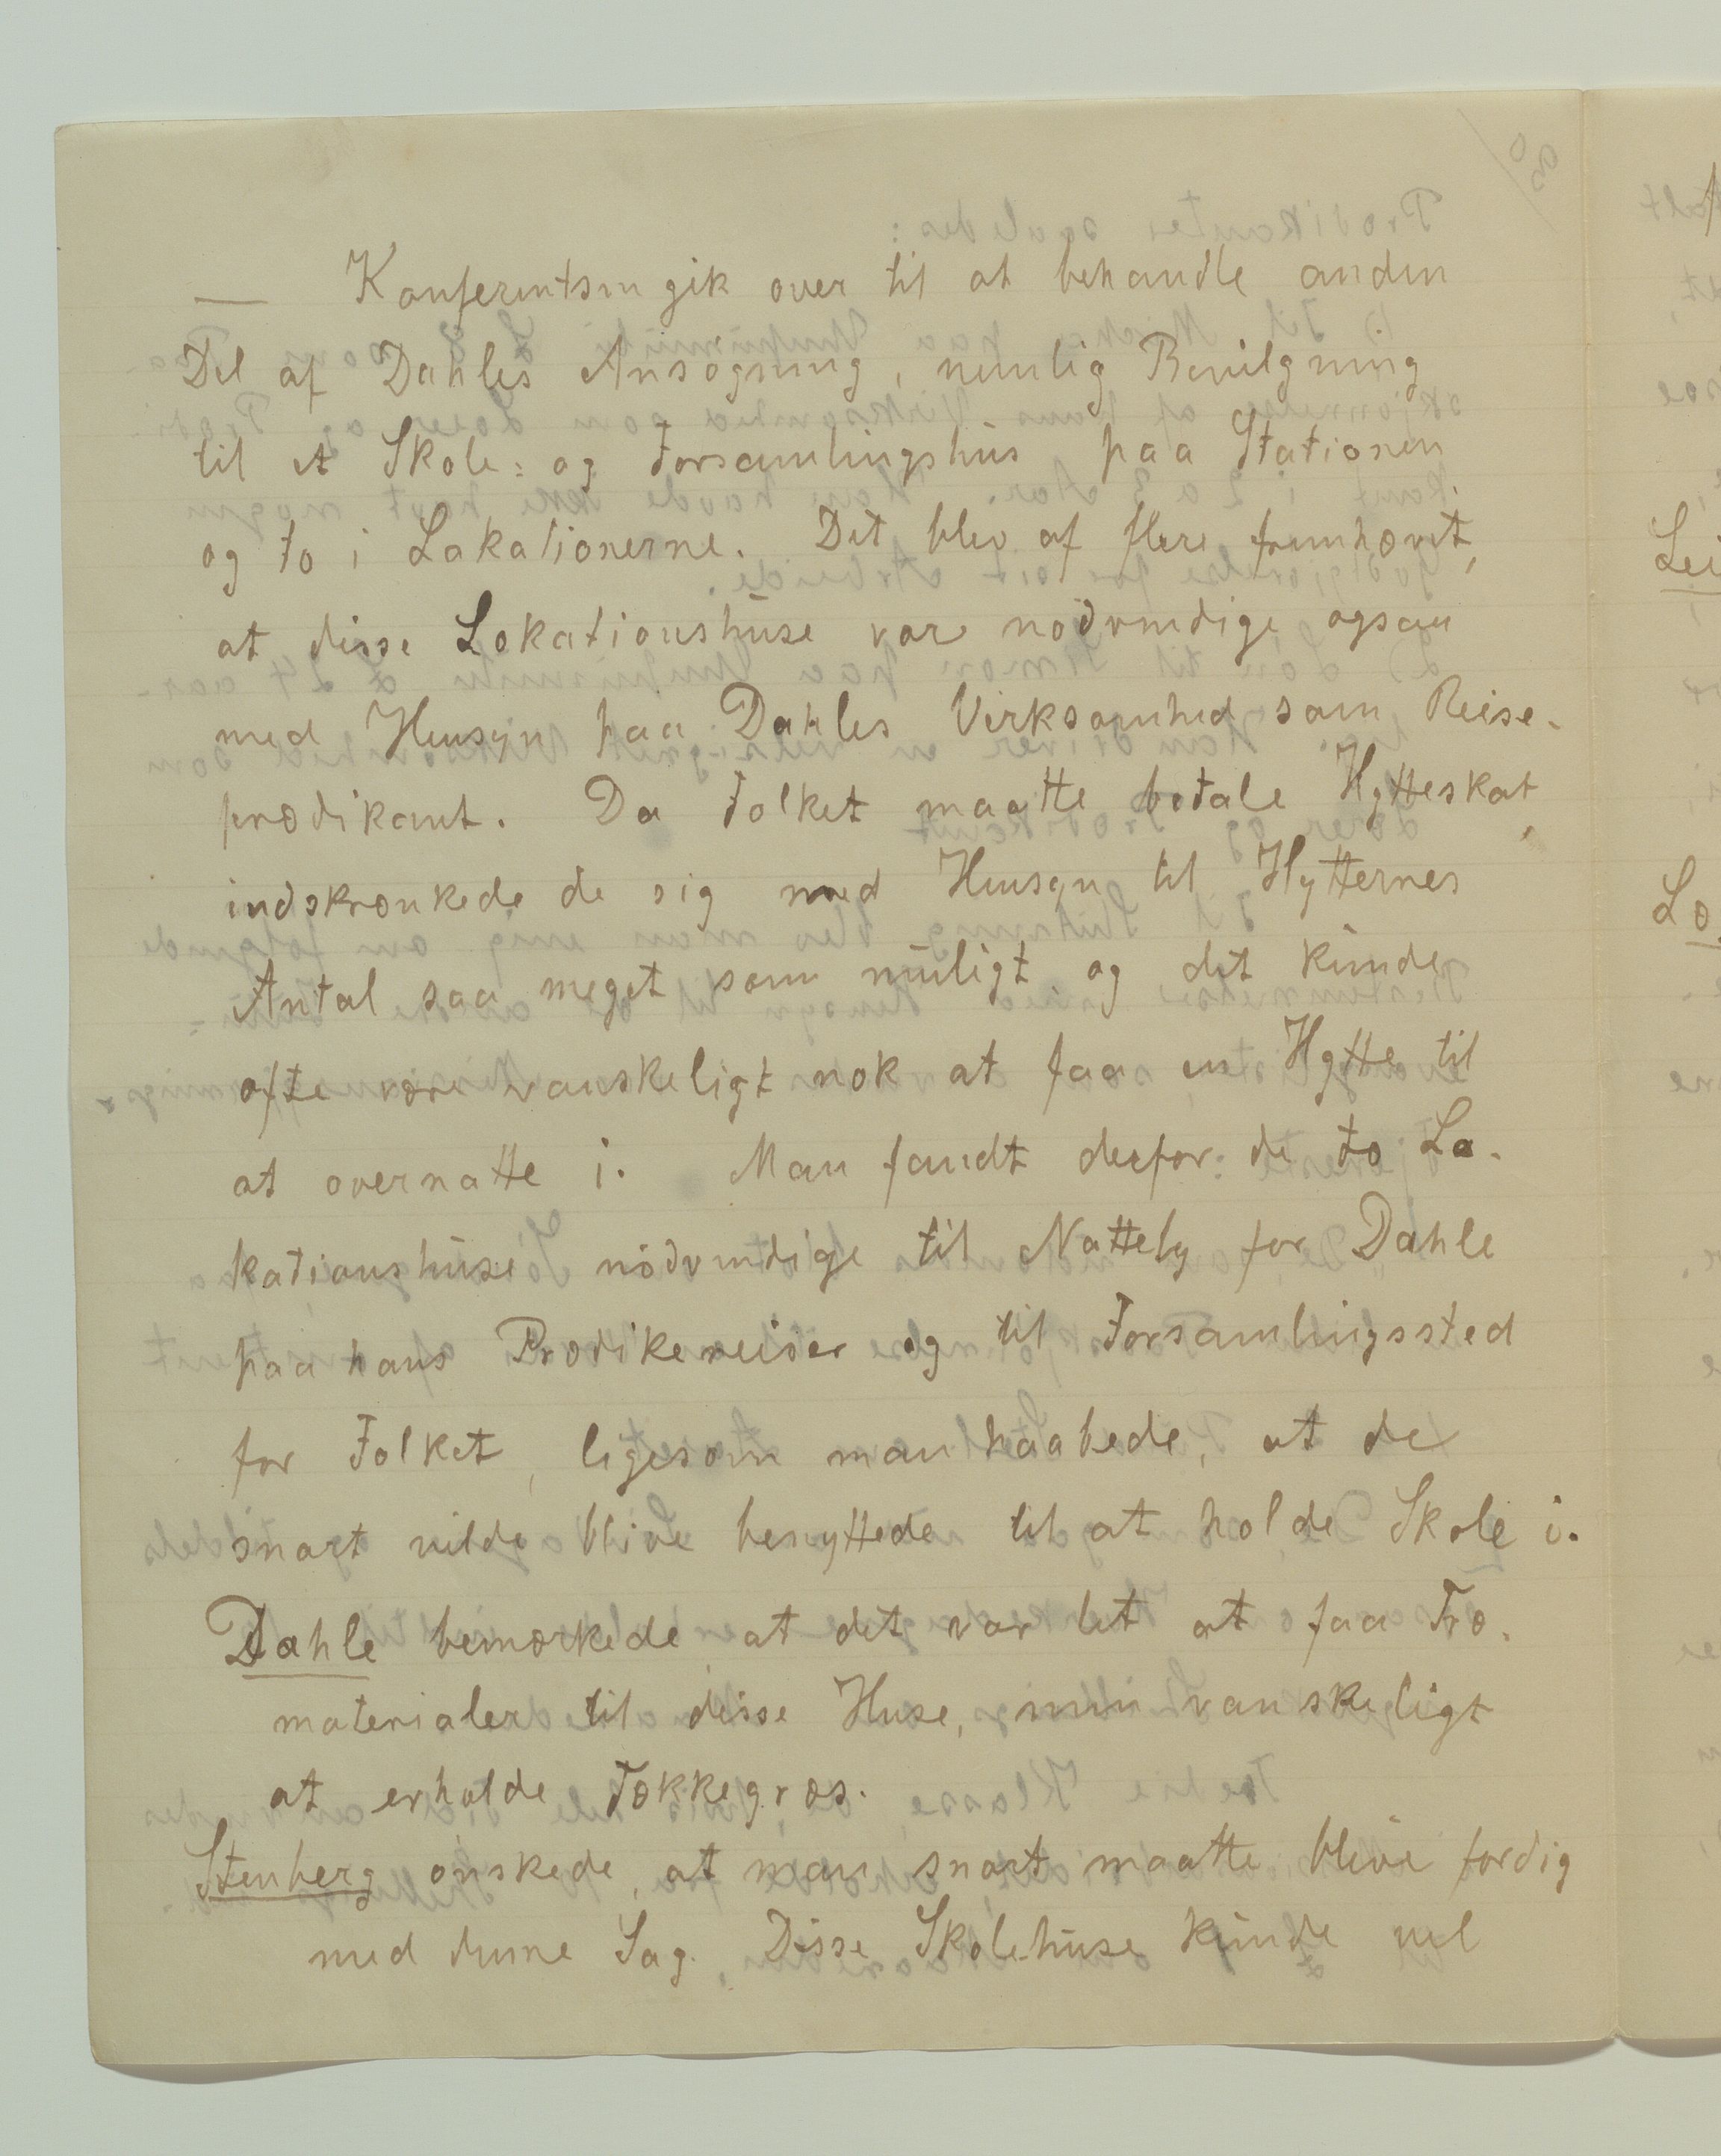 — Konferentsen gik over til at behandle anden
Del af Dahles Ansøgning, nemlig Bevilgning
til et Skole= og Forsamlingshus paa Stationen
og to i Lokationerne. Det blev af flere fremhævet,
at disse Lokationshuse var nødvendige ogsaa
med Hensyn paa Dahles Virksomhed som Reise-
prædikant. Da Folket maatte betale Hytteskat,
indskrænkede de sig med Hensyn til Hytternes
Antal saa meget som muligt, og det kunde
ofte være vanskeligt nok at faa en Hytte til
at overnatte i. Man fandt derfor de to Lo-
kationshuse nødvendige til Nattely for Dahle
paa hans Prædikereiser og til Forsamlingssted
for Folket, ligesom man haabede, at de
snart vilde blive benyttede til at holde Skole i.
Dahle bemærkede, at det var let at faa Træ-
materialer til disse Huse, men vanskeligt
at erholde Tækkegræs.
Stenberg ønskede, at man snart maatte blive færdig
med denne Sag. Disse Skolehuse kunde vel